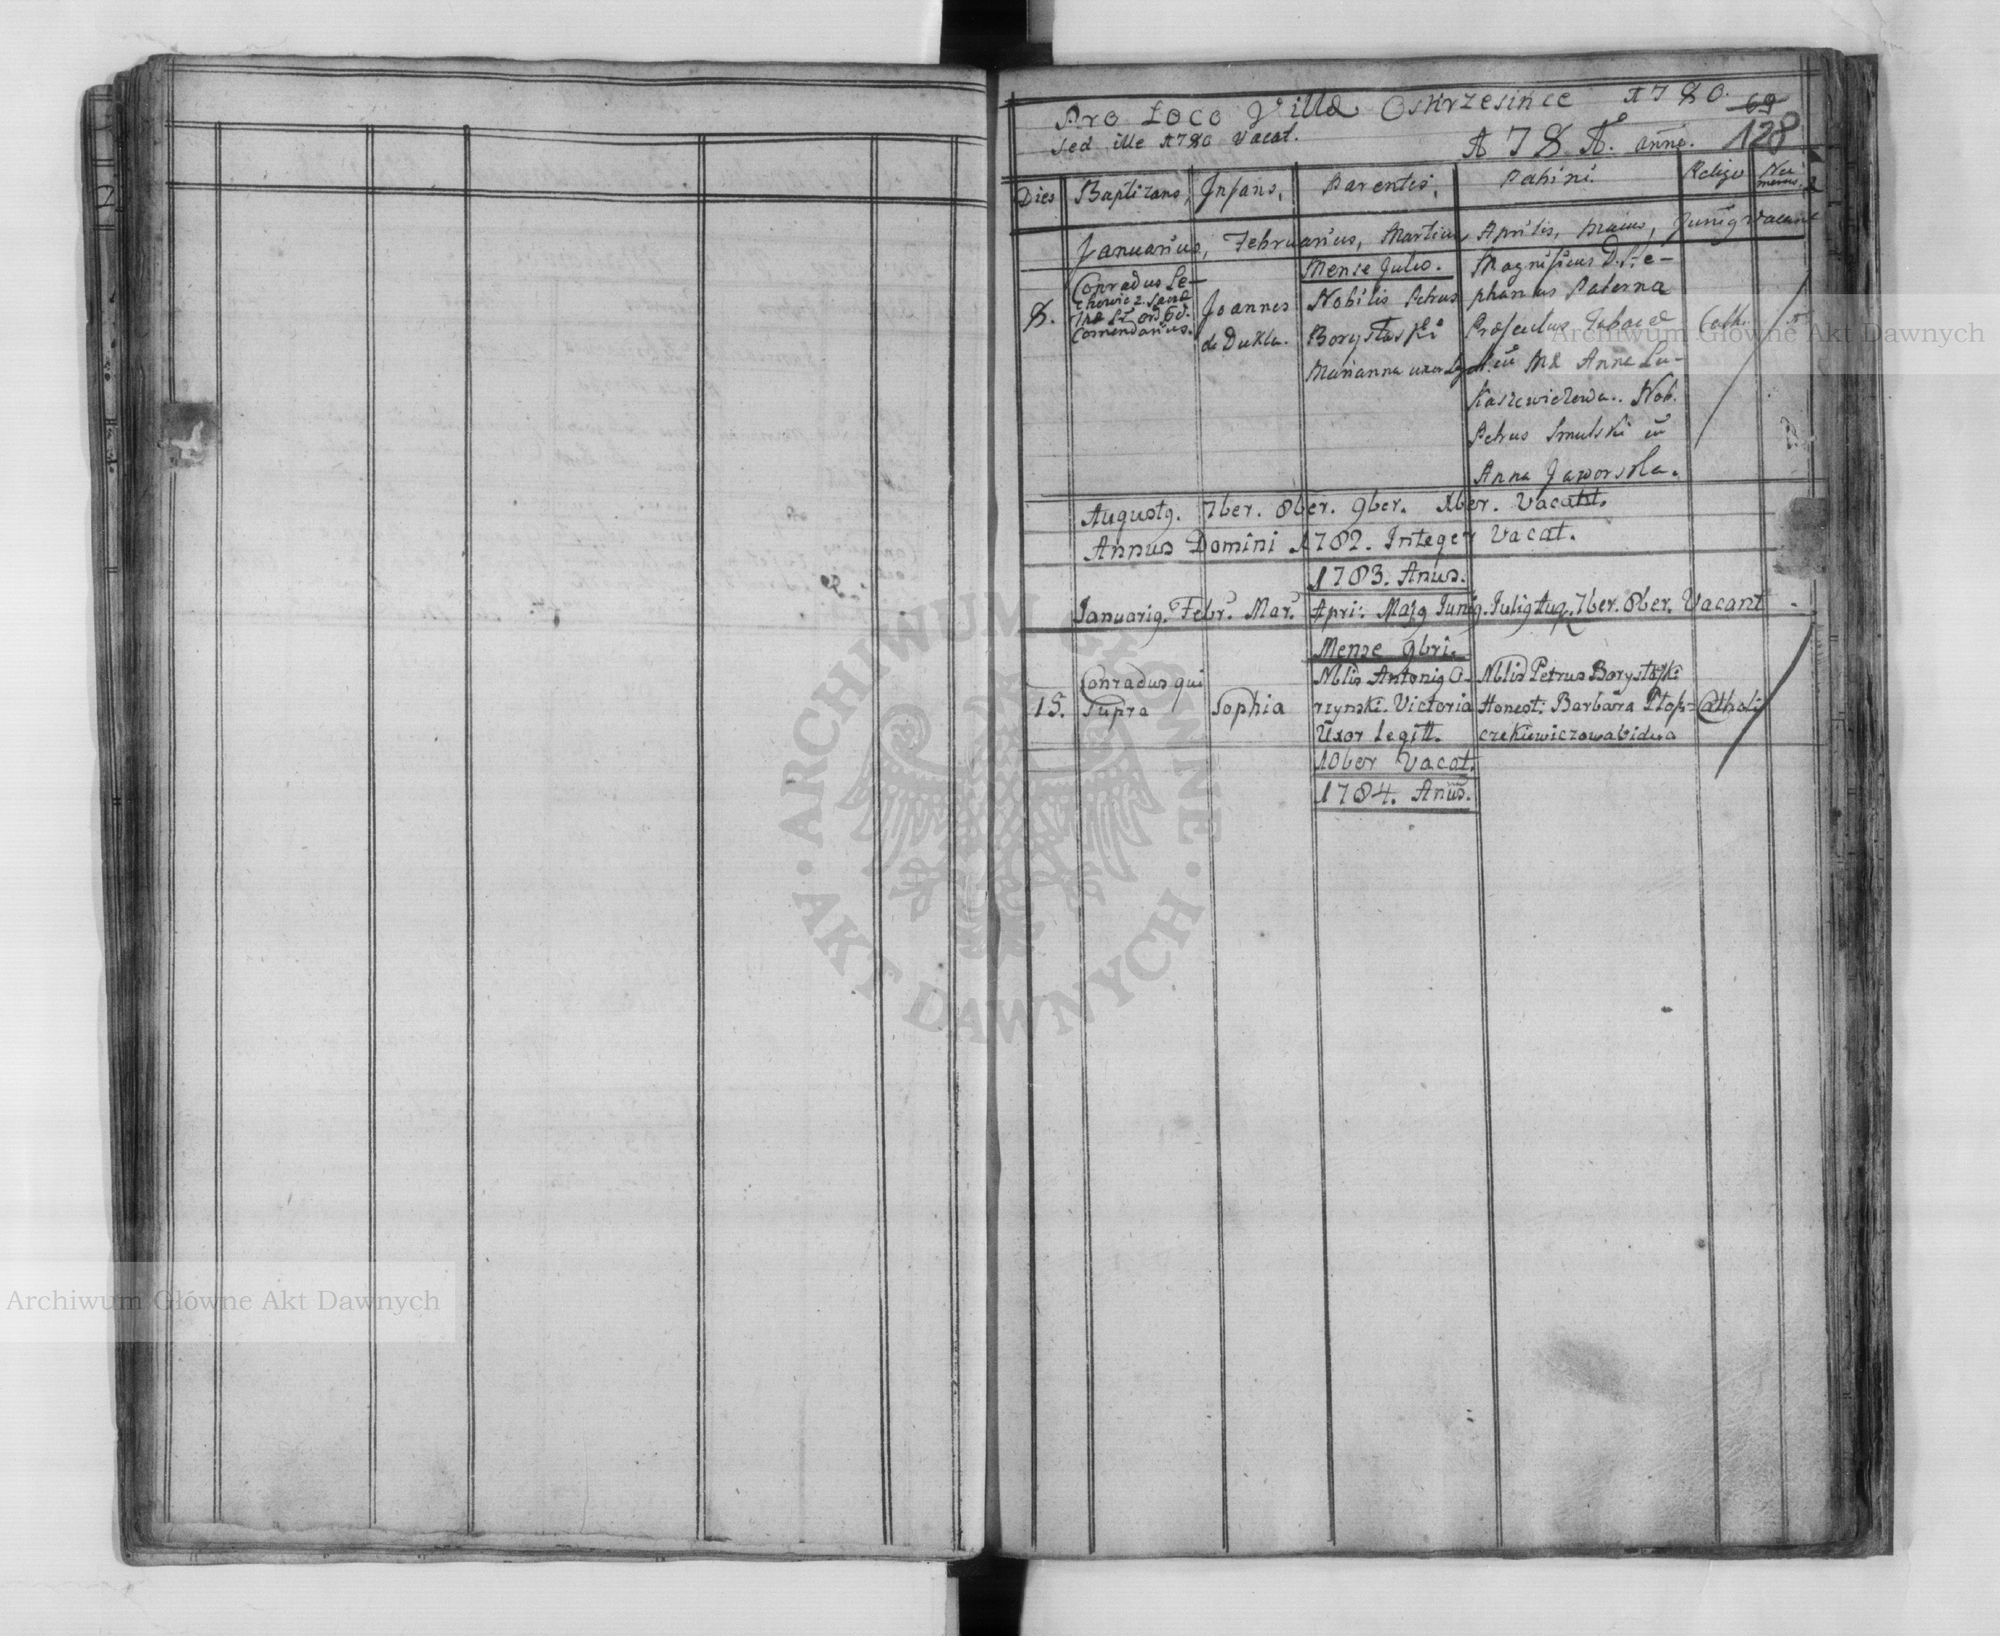 Pro Loco Villa Oskrzesince A 1780.
69
sed ille A 1780 Vacat.
A 1781. anno.
128
Dies Baptizans, Infans, Parentes, Patrini. Religio Numerus.
Januarius, Februarius, Martius, Aprilis, Maius, Juniq vacant
Mense Julio.
8.
Conradus Le-
chowicz
Ord
Comendarius.
Joannes
de Dukla.
Nobilis Petrus
Borysławski
Marianna uxor Legit.
Magnificus D. Ste-
phanus Paterna
cū Mł Anna Łu-
kaszewiczowa. Nob.
Petrus Smulski cū
Anna Jaworska.
Cath.
Augustq. 7ber. 8ber. 9ber. Xber. Vacant.
Annus Domini 1782. Integer Vacat.
1783. Anus.
Januariq. Febr. Mar. Apri: Majq Juniq. Juliq Aug. 7ber. 8ber. Vacant.
Mense 9bri.
15.
Conradus qui
supra
Sophia
Nblis Antoniq O-
rzynski. Victoria
Uxor Legitt.
Nblis Petrus Borysławski
Honest: Barbara
vidua
Catholi
10ber Vacat.
1784. Anus.
Archiwum Główne Akt Dawnych
ARCHIWUM GŁÓWNE · AKT DAWNYCH ·
Archiwum Główne Akt Dawnych